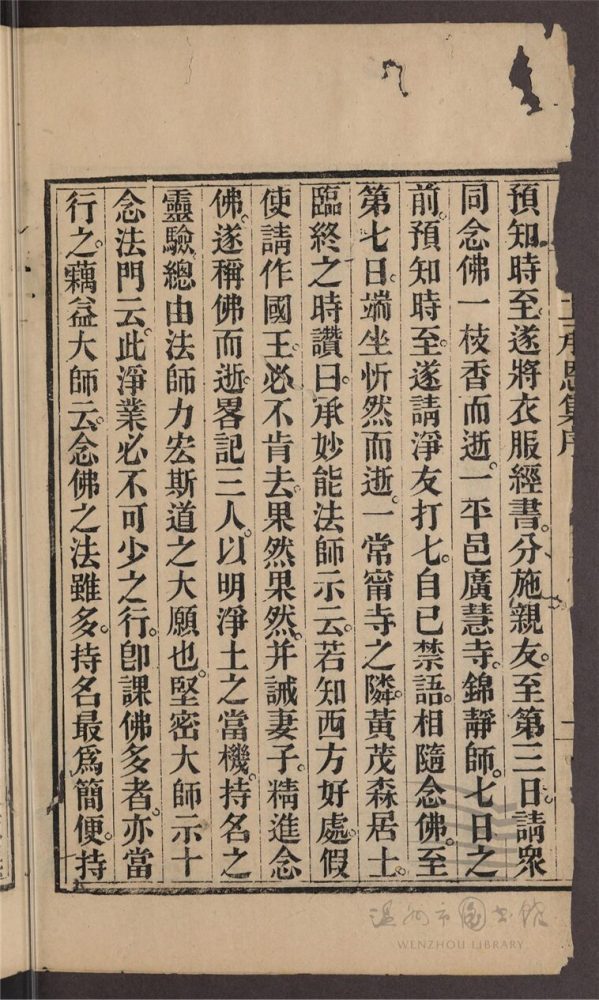 預知時至。遂將衣服經書。分施親友。至第三日。請衆
同念佛一枝香而逝。一平邑廣慧寺。錦靜師。七日之
前。預知時至。遂請淨友打七。自已禁語。相隨念佛。至
第七日。端坐忻然而逝。一常甯寺之隣。黃茂森居士。
臨終之時讚曰。承妙能法師示云。若知西方好處。假
使請作國王。必不肯去。果然果然。并誡妻子。精進念
佛。遂稱佛而逝。畧記三人。以明淨土之當機。持名之
靈驗。總由法師力宏斯道之大願也。堅密大師示十
念法門云。此淨業必不可少之行。卽課佛多者。亦當
行之。藕益大師云。念佛之法雖多。持名最爲簡便。持
温州市图书馆
WENZHOU LIBRARY